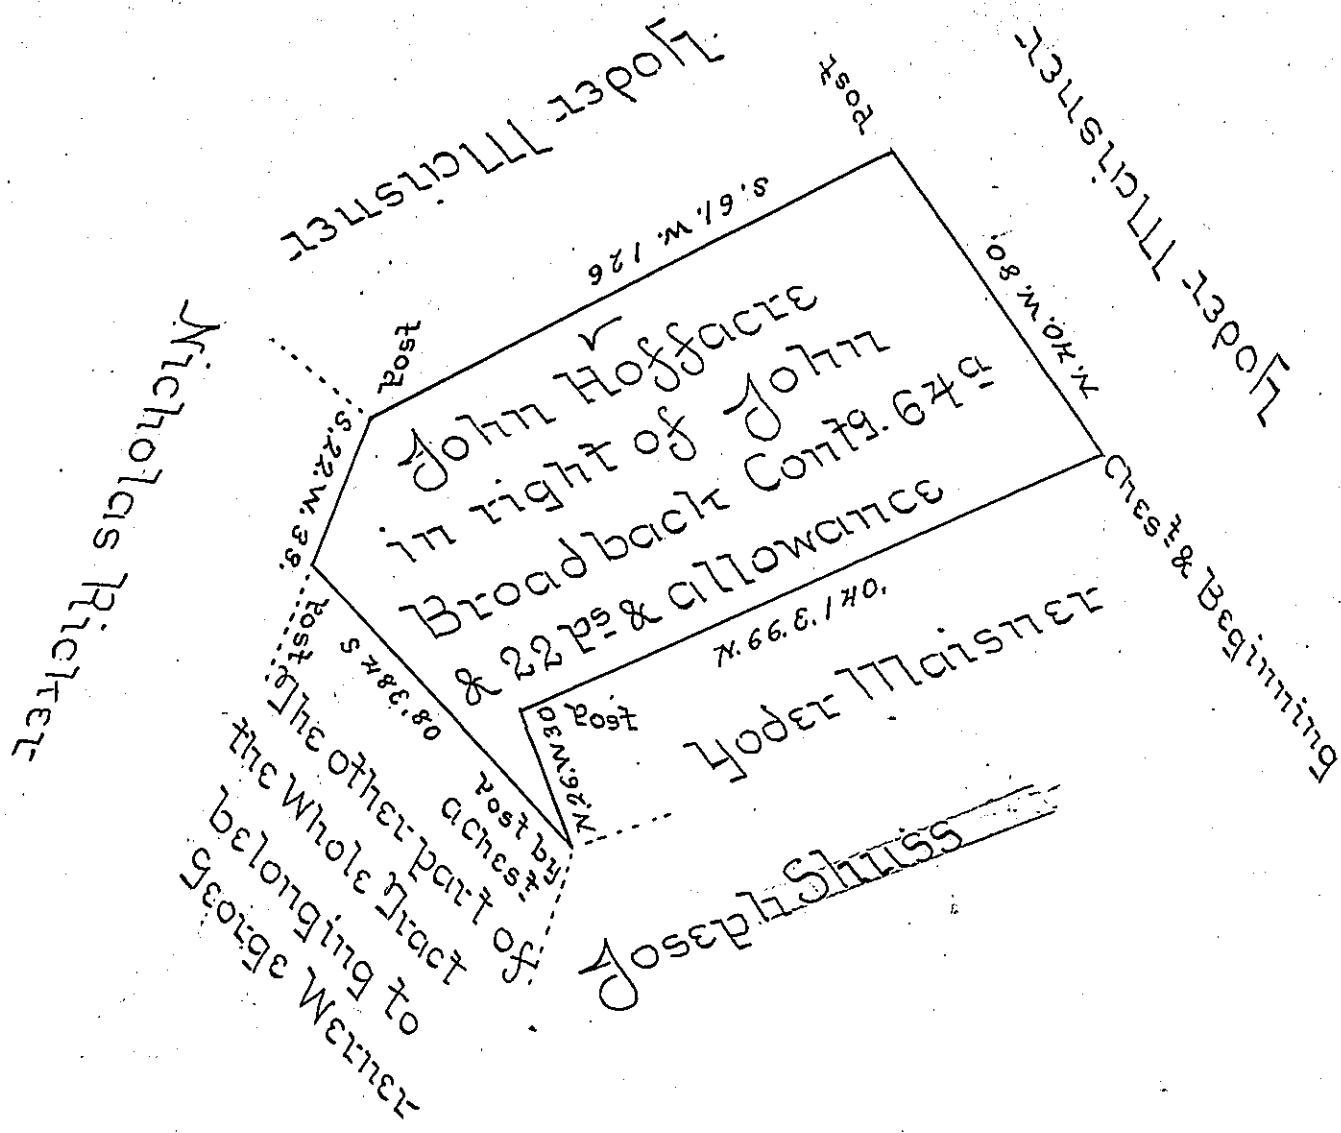 Yoder Maisner
Post
Yoder Maisner
S. 61. W. 126
N. 40. W. 80.
Nicholas Richter
Post
S. 22. W. 38.
John Hoffacre
in right of John
Broadback Contg. 64 a
& 22 ps & allowance
Chest & Beginning
N. 66. E. 140.
Post
Post
N. 26. W 30
Yoder Maisner
Post by
a Chest
The other part of
the Whole Tract
belonging to
George Werner
Joseph Shuss